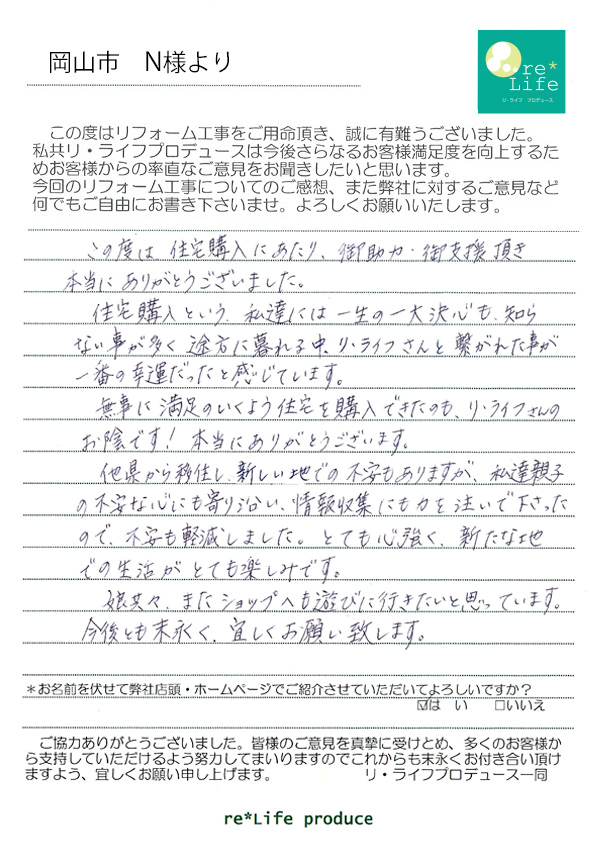 岡山市　N様より
re*
Life
リ・ライフ　プロデュース
この度はリフォーム工事をご用命頂き、誠に有難うございました。
私共リ・ライフプロデュースは今後さらなるお客様満足度を向上するた
めお客様からの率直なご意見をお聞きしたいと思います。
今回のリフォーム工事についてのご感想、また弊社に対するご意見など
何でもご自由にお書き下さいませ。よろしくお願いいたします。
この度は、住宅購入にあたり、御助力・御支援頂き
本当にありがとうございました。
住宅購入という、私達には一生の一大決心も、知ら
ない事が多く途方に暮れる中、リ・ライフさんと繋がれた事が
一番の幸運だったと感じています。
無事に満足のいくよう住宅を購入できたのも、リ・ライフさんの
お陰です！本当にありがとうございます。
他県から移住し、新しい地での不安もありますが、私達親子
の不安な心にも寄り沿い、情報収集にも力を注いで下さった
ので、不安も軽減しました。とても心強く、新たな地
での生活がとても楽しみです。
娘共々、またショップへも遊びに行きたいと思っています。
今後とも末永く、宜しくお願い致します。
＊お名前を伏せて弊社店頭・ホームページでご紹介させていただいてよろしいですか？
☑は　い　　□いいえ
ご協力ありがとうございました。皆様のご意見を真摯に受けとめ、多くのお客様か
ら支持していただけるよう努力してまいりますのでこれからも末永くお付き合い頂け
ますよう、宜しくお願い申し上げます。　　　　　　　リ・ライフプロデュース一同
re*Life produce